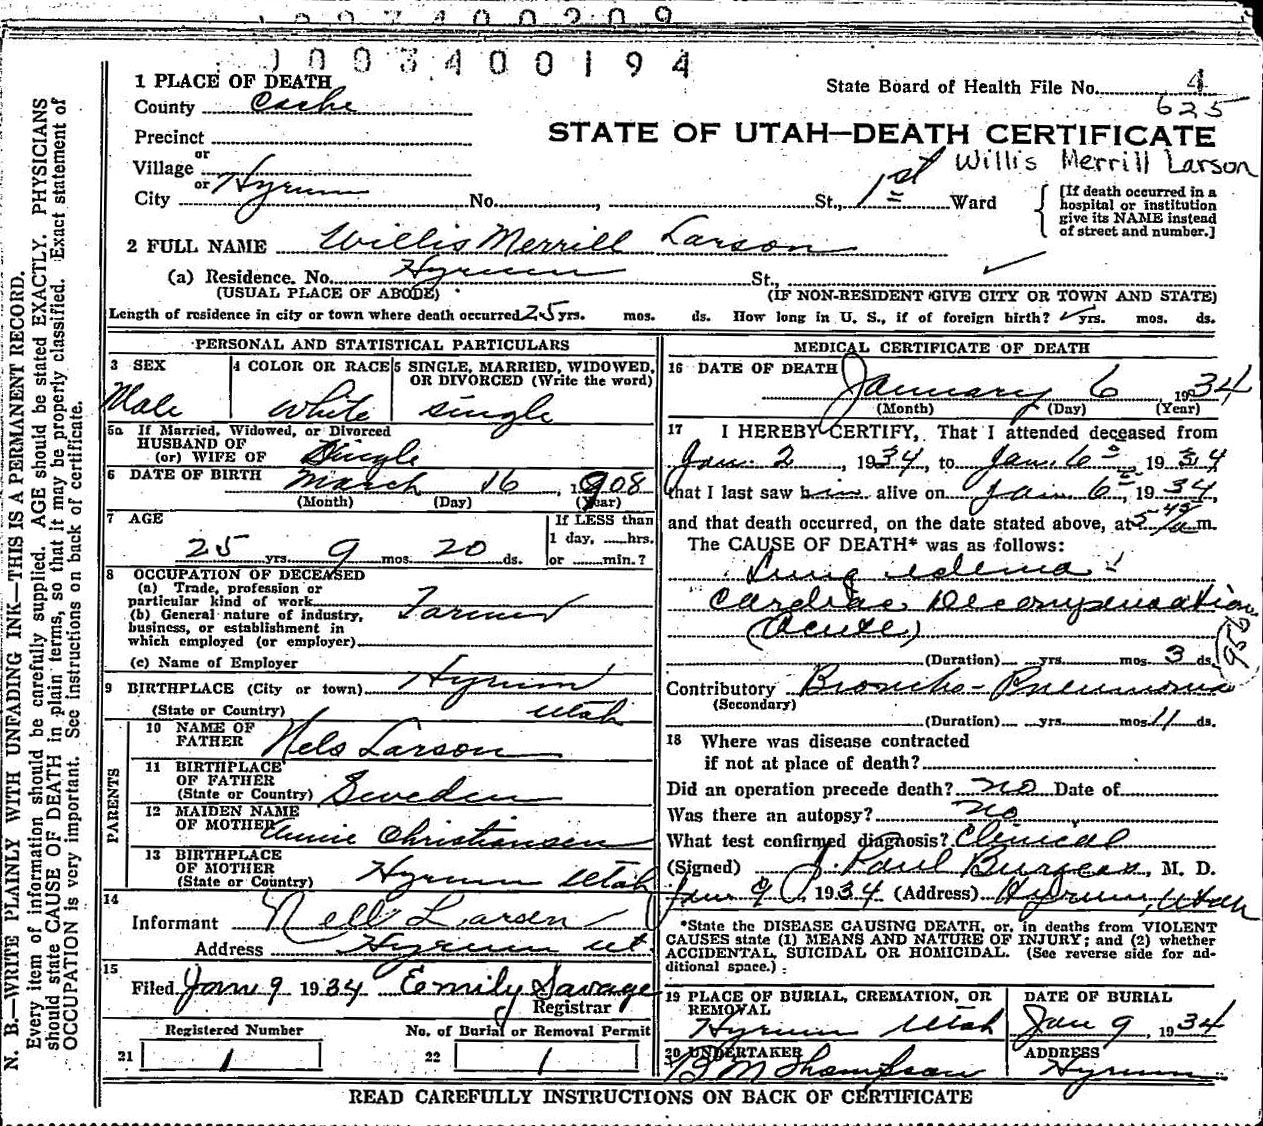 1003400209
1003400194
1 PLACE OF DEATH
State Board of Health File No. 4
County Cache
625
Precinct
STATE OF UTAH—DEATH CERTIFICATE
or
Village
Willis Merrill Larson
or
City Hyrum No. , St., 1st Ward
[If death occurred in a
hospital or institution
give its NAME instead
of street and number.]
2 FULL NAME Willis Merrill Larson
(a) Residence. No. Hyrum St.,
(USUAL PLACE OF ABODE) (IF NON-RESIDENT GIVE CITY OR TOWN AND STATE)
Length of residence in city or town where death occurred 25 yrs. mos. ds. How long in U. S., if of foreign birth? yrs. mos. ds.
PERSONAL AND STATISTICAL PARTICULARS
3 SEX
Male
4 COLOR OR RACE
White
5 SINGLE, MARRIED, WIDOWED,
OR DIVORCED (Write the word)
single
5a If Married, Widowed, or Divorced
HUSBAND OF
(or) WIFE OF Single
6 DATE OF BIRTH March 16, 1908
(Month) (Day) (Year)
7 AGE
25 yrs. 9 mos. 20 ds.
If LESS than
1 day, ......hrs.
or ......min.?
8 OCCUPATION OF DECEASED
(a) Trade, profession or
particular kind of work
Farmer
(b) General nature of industry,
business, or establishment in
which employed (or employer)
(c) Name of Employer
9 BIRTHPLACE (City or town) Hyrum
(State or Country) Utah
PARENTS
10 NAME OF
FATHER Nels Larson
11 BIRTHPLACE
OF FATHER
(State or Country) Sweden
12 MAIDEN NAME
OF MOTHER Annie Christiansen
13 BIRTHPLACE
OF MOTHER
(State or Country) Hyrum Utah
14
Informant Nell Larsen
Address Hyrum Ut.
15
Filed Jan 9 1934 Emily Savage
Registrar
Registered Number No. of Burial or Removal Permit
21 1 22 1
MEDICAL CERTIFICATE OF DEATH
16 DATE OF DEATH
January 6, 1934
(Month) (Day) (Year)
17 I HEREBY CERTIFY, That I attended deceased from
Jan. 2, 1934, to Jan. 6, 1934
that I last saw him alive on Jan 6, 1934,
and that death occurred, on the date stated above, at 5-45 a m.
The CAUSE OF DEATH* was as follows:
Lung edema
Cardiac Decompensation
(Acute)
95b
(Duration) yrs. mos. 3 ds.
Contributory Broncho-Pneumonia
(Secondary)
(Duration) yrs. mos. 11 ds.
18 Where was disease contracted
if not at place of death?
Did an operation precede death? no Date of
Was there an autopsy? no
What test confirmed diagnosis? Clinical
(Signed) J. Paul Burgess, M. D.
Jan 9, 1934 (Address) Hyrum, Utah
*State the DISEASE CAUSING DEATH, or, in deaths from VIOLENT
CAUSES state (1) MEANS AND NATURE OF INJURY; and (2) whether
ACCIDENTAL, SUICIDAL OR HOMICIDAL. (See reverse side for ad-
ditional space.)
19 PLACE OF BURIAL, CREMATION, OR
REMOVAL
Hyrum Utah
DATE OF BURIAL
Jan 9, 1934
20 UNDERTAKER
B M Thompson
ADDRESS
Hyrum
READ CAREFULLY INSTRUCTIONS ON BACK OF CERTIFICATE
N. B.—WRITE PLAINLY WITH UNFADING INK—THIS IS A PERMANENT RECORD.
Every item of information should be carefully supplied. AGE should be stated EXACTLY. PHYSICIANS
should state CAUSE OF DEATH in plain terms, so that it may be properly classified. Exact statement of
OCCUPATION is very important. See instructions on back of certificate.